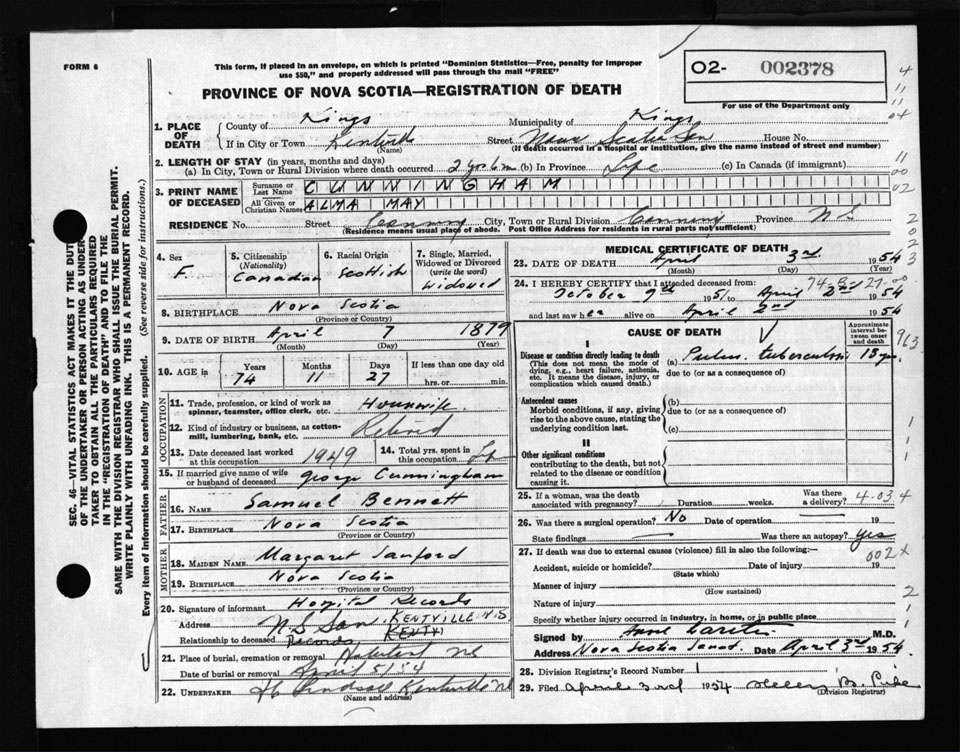 FORM 6
This form, if placed in an envelope, on which is printed "Dominion Statistics—Free, penalty for improper
use $50," and properly addressed will pass through the mail "FREE"
O2- 002378
For use of the Department only
PROVINCE OF NOVA SCOTIA—REGISTRATION OF DEATH
1. PLACE OF DEATH
County of Kings Municipality of Kings
If in City or Town Kentville Street Nova Scotia San House No.
(Name) (If death occurred in a hospital or institution, give the name instead of street and number)
2. LENGTH OF STAY (in years, months and days)
(a) In City, Town or Rural Division where death occurred 2 yrs 6 m (b) In Province Life (c) In Canada (if immigrant)
3. PRINT NAME OF DECEASED
Surname or Last Name CUNNINGHAM
All Given or Christian Names ALMA MAY
RESIDENCE No. Street Canning City, Town or Rural Division Canning Province N S
(Residence means usual place of abode. Post Office Address for residents in rural parts not sufficient)
4. Sex F.
5. Citizenship (Nationality) Canadian
6. Racial Origin Scottish
7. Single, Married, Widowed or Divorced (write the word) Widowed
8. BIRTHPLACE Nova Scotia
(Province or Country)
9. DATE OF BIRTH April 7 1879
(Month) (Day) (Year)
10. AGE in Years 74 Months 11 Days 27 If less than one day old hrs. or min.
OCCUPATION
11. Trade, profession or kind of work as spinner, teamster, office clerk, etc. Housewife.
12. Kind of industry or business, as cotton-mill, lumbering, bank, etc. Retired
13. Date deceased last worked at this occupation 1949
14. Total yrs. spent in this occupation
15. If married give name of wife or husband of deceased George Cunningham
FATHER
16. NAME Samuel Bennett
17. BIRTHPLACE Nova Scotia
(Province or Country)
MOTHER
18. MAIDEN NAME Margaret Sanford
19. BIRTHPLACE Nova Scotia
(Province or Country)
20. Signature of informant Hospital Records
Address N.S San. KENTVILLE N.S
Relationship to deceased Records KENTV
21. Place of burial, cremation or removal NS
Date of burial or removal April 5/54
22. UNDERTAKER Kentville NS
(Name and address)
MEDICAL CERTIFICATE OF DEATH
23. DATE OF DEATH April 3rd 1954
(Month) (Day) (Year)
24. I HEREBY CERTIFY that I attended deceased from:
October 9th 1951 April 2nd 1954
and last saw her alive on April 2nd 1954
CAUSE OF DEATH
Approximate interval between onset and death
I
Disease or condition directly leading to death
(This does not mean the mode of dying, e.g., heart failure, asthenia, etc. It means the disease, injury, or complication which caused death.)
(a) Pulm. tuberculosis 13 yrs.
due to (or as a consequence of)
Antecedent causes
Morbid conditions, if any, giving rise to the above cause, stating the underlying condition last.
(b)
due to (or as a consequence of)
(c)
II
Other significant conditions
contributing to the death, but not related to the disease or condition causing it.
25. If a woman, was the death associated with pregnancy? Duration weeks. Was there a delivery? 4.03 4
26. Was there a surgical operation? No Date of operation — 19
State findings — Was there an autopsy? yes
27. If death was due to external causes (violence) fill in also the following:—
Accident, suicide or homicide? Date of injury 19
(State which)
Manner of injury
(How sustained)
Nature of injury
Specify whether injury occurred in industry, in home, or in public place
Signed by Anne M.D.
Address Nova Scotia Sanat. Date April 3rd 1954.
28. Division Registrar's Record Number 1
29. Filed April 3rd 1954 Helen B.
(Division Registrar)
SEC. 46—VITAL STATISTICS ACT MAKES IT THE DUTY
OF THE UNDERTAKER OR PERSON ACTING AS UNDER-
TAKER TO OBTAIN ALL THE PARTICULARS REQUIRED
IN THE "REGISTRATION OF DEATH" AND TO FILE THE
SAME WITH THE DIVISION REGISTRAR WHO SHALL ISSUE THE BURIAL PERMIT.
WRITE PLAINLY WITH UNFADING INK. THIS IS A PERMANENT RECORD.
Every item of information should be carefully supplied. (See reverse side for instructions.)